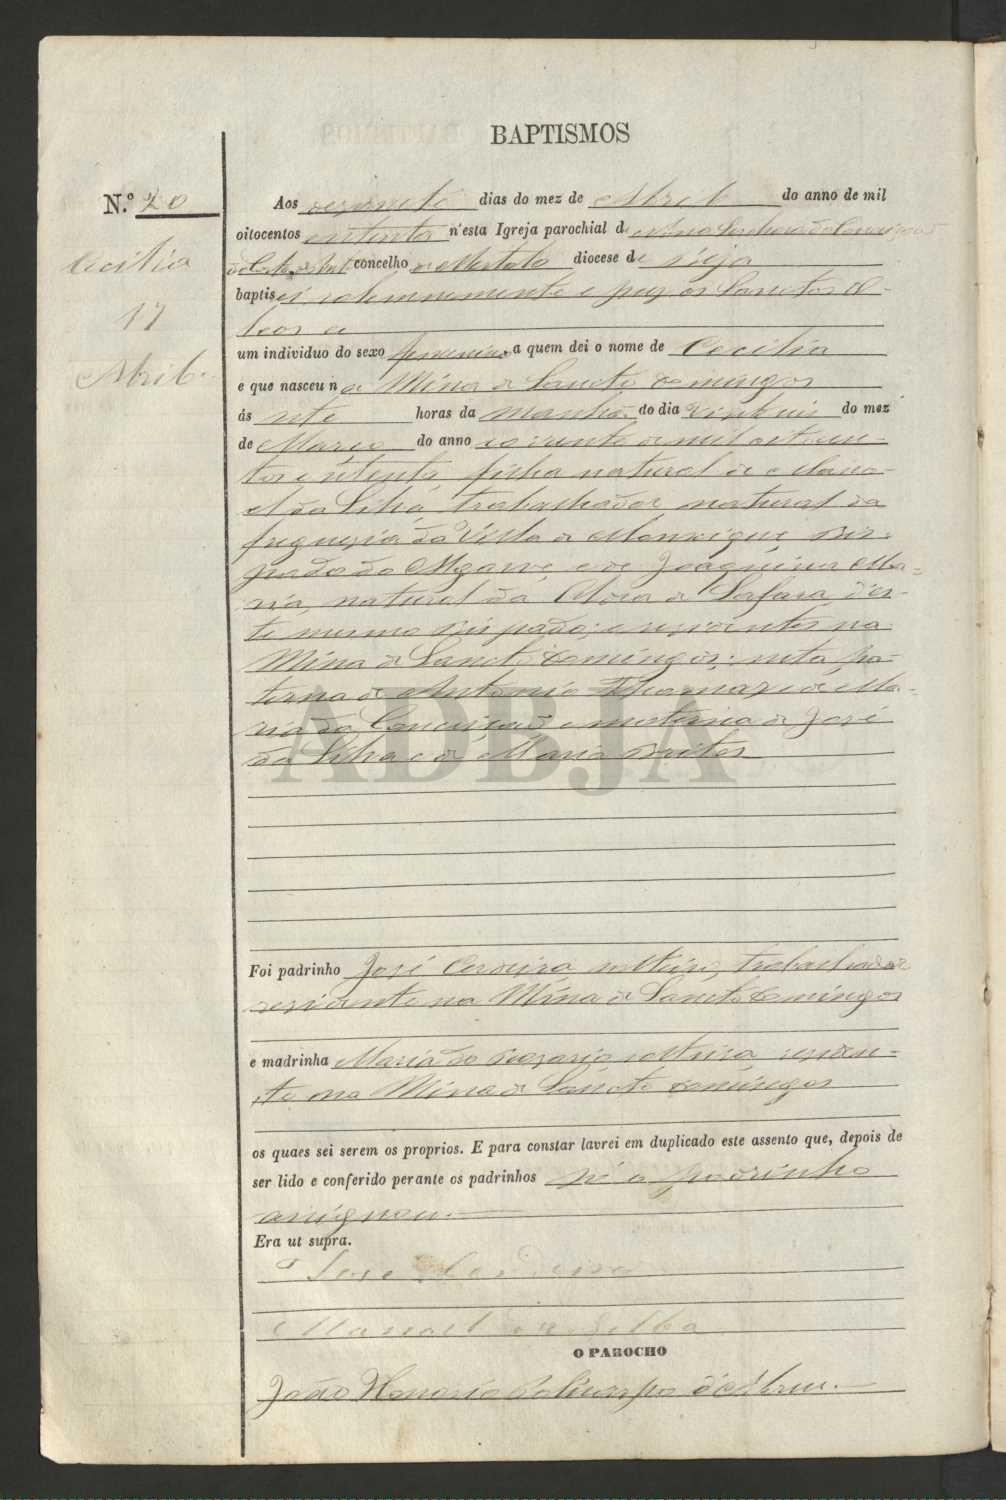 BAPTISMOS
N.º 20
Cecilia
17
Abril
Aos dezasete dias do mez de Abril do anno de mil
oitocentos oitenta n'esta Igreja parochial de
concelho de Mertola diocese de Beja
baptisei solemnemente e puz os Sanctos O-
leos a
um individuo do sexo femenino a quem dei o nome de Cecilia
e que nasceu na Mina de Sancto Domingos
ás sete horas da manhã do dia vinte seis do mez
de Março do anno corrente de mil oitocen-
tos e oitenta, filha natural de Mano-
el da Silva, trabalhador natural da
freguesia da de Monxique, Bis-
pado do Algarve, e de Joaquina Ma-
ria, natural da de Safara, d'es-
te mesmo Bispado; e residentes na
Mina de Sancto Domingos; neta pa-
terna de Antonio e de Ma-
ria da Conceição e materna de José
da Silva e de Maria
Foi padrinho José Cerveira, solteiro, trabalhador
residente na Mina de Sancto Domingos
e madrinha Maria do Rozario solteira, residen-
te na Mina de Sancto Domingos
os quaes sei serem os proprios. E para constar lavrei em duplicado este assento que, depois de
ser lido e conferido perante os padrinhos só o padrinho
assignou.
Era ut supra.
Jose
Manoel da Silva
O PAROCHO
João Honorio Policarpo d'Abreu.
ADBJA